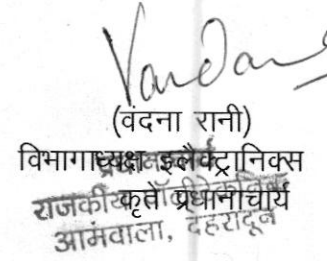 Vandana
(वंदना रानी)
विभागाध्यक्ष इलैक्ट्रानिक्स
कृते प्रधानाचार्य
राजकीय
आमंवाला, देहरादून